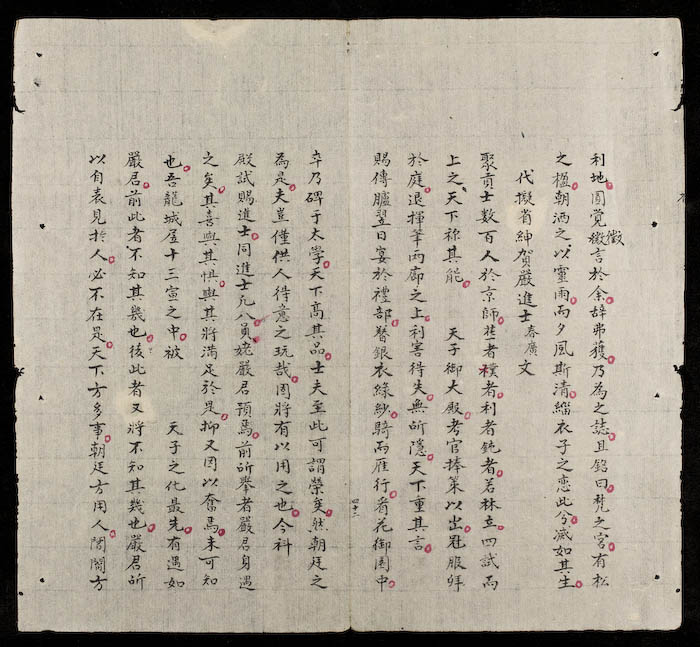 利地圓覺徵言於余辞弗獲乃為之誌且銘曰梵之宮有松
之楹朝洒之以靈雨而夕風斯清緇衣子之恋此兮滅如其生
代擬省紳賀嚴進士春廣文
聚貢士數百人於京師狂者樸者利者鈍者若林立四試而
上之天下称其能 天子御大殿考官捧策以出冠服拜
於庭退揮筆兩廊之上利害得失無所隱天下重其言
賜傳臚翌日宴於禮部簪銀衣綠紗騎而雁行看花御園中
卒乃碑于太學天下高其品士夫至此可謂榮矣然朝廷之
為是夫豈僅供人得意之玩哉固將有以用之也今科
殿試賜進士同進士凡八員姥嚴君預焉前所舉者嚴君身遇
之矣其喜與其惧與其將滿足於是抑又因以奮焉未可知
也吾龍城居十三宣之中被 天子之化最先有遇如
嚴君前此者不知其幾也後此者又將不知其幾也嚴君所
以自表見於人必不在是天下方多事朝廷方用人閣閣方
四十二